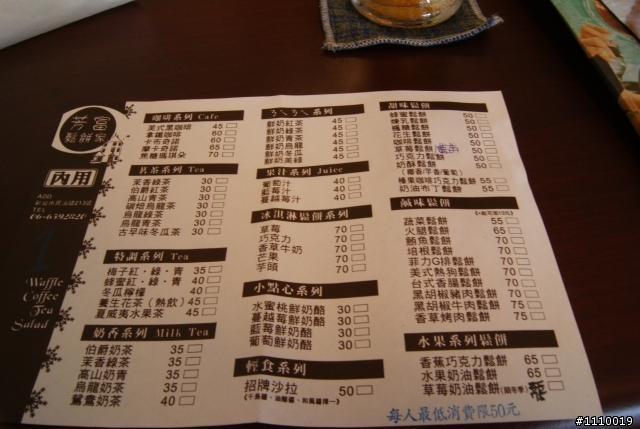 芳富
鬆餅家
內用
ADD
TEL
06-6392820
Waffle
Coffee
Tea
Salad
咖啡系列 Cafe
美式黑咖啡 45
拿鐵咖啡 60
卡布奇諾 60
摩卡奇諾 65
焦糖瑪琪朵 70
茗茶系列 Tea
茉香綠茶 30
伯爵紅茶 30
高山青茶 30
碳焙烏龍茶 30
烏龍綠茶 30
烏龍青茶 30
古早味冬瓜茶 30
特調系列 Tea
梅子紅．綠．青 35
蜂蜜紅．綠．青 40
冬瓜檸檬 40
養生花茶(熱飲) 45
夏威夷水果茶 45
奶香系列 Milk Tea
伯爵奶茶 35
茉香奶茶 35
高山奶青 35
烏龍奶茶 35
鴛鴦奶茶 40
ㄋㄟㄋㄟ系列
鮮奶紅茶 45
鮮奶綠茶 45
鮮奶青茶 45
鮮奶烏龍 45
鮮奶冬瓜 45
鮮奶美綠 45
果汁系列 Juice
葡萄汁 40
藍莓汁 40
蔓越莓汁 40
冰淇淋鬆餅系列
草莓 70
巧克力 70
香草牛奶 70
芒果 70
芋頭 70
小點心系列
水蜜桃鮮奶酪 30
蔓越莓鮮奶酪 30
藍莓鮮奶酪 30
葡萄鮮奶酪 30
輕食系列
招牌沙拉 50
甜味鬆餅
蜂蜜鬆餅 50
煉乳鬆餅 50
楓糖鬆餅 50
花生鬆餅 50
咖啡鬆餅 50
草莓鬆餅 50
巧克力鬆餅 50
奶酥鬆餅 50
榛果咖啡巧克力鬆餅 55
奶油布丁鬆餅 55
鹹味鬆餅
蔬菜鬆餅 55
火腿鬆餅 65
鮪魚鬆餅 70
培根鬆餅 70
菲力G排鬆餅 70
美式熱狗鬆餅 70
台式香腸鬆餅 70
黑胡椒豬肉鬆餅 70
黑胡椒牛肉鬆餅 75
香草烤肉鬆餅 75
水果系列鬆餅
香蕉巧克力鬆餅 65
水果奶油鬆餅 65
草莓奶油鬆餅(限冬季)
每人最低消費限50元
#1110019